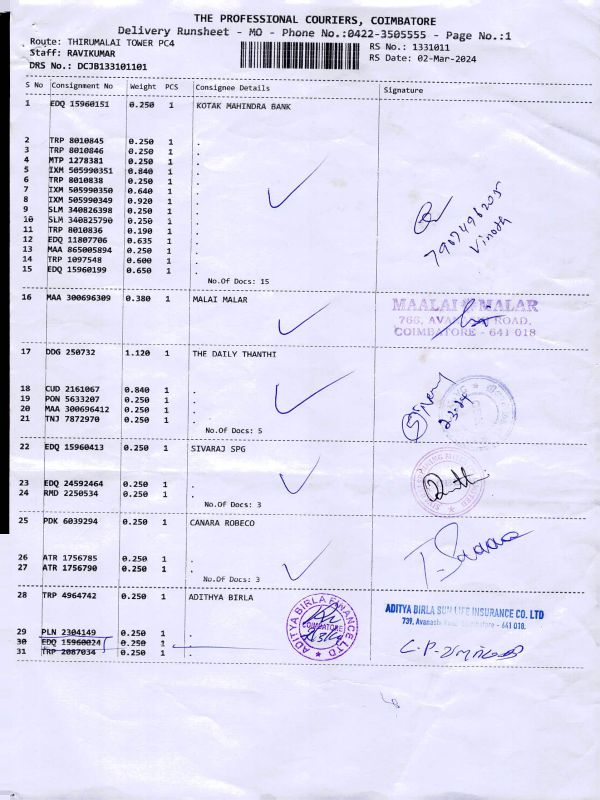 THE PROFESSIONAL COURIERS, COIMBATORE
Delivery Runsheet - MO - Phone No.:0422-3505555 - Page No.:1
Route: THIRUMALAI TOWER PC4
RS No.: 1331011
Staff: RAVIKUMAR
RS Date: 02-Mar-2024
DRS No.: DCJB133101101
S No Consignment No Weight PCS Consignee Details Signature
1 EDQ 15960151 0.250 1 KOTAK MAHINDRA BANK
2 TRP 8010845 0.250 1 .
3 TRP 8010846 0.250 1 .
4 MTP 1278381 0.250 1 .
5 IXM 505990351 0.840 1 .
6 TRP 8010838 0.250 1 .
7 IXM 505990350 0.640 1 .
8 IXM 505990349 0.920 1 .
9 SLM 340826398 0.250 1 .
10 SLM 340825790 0.250 1 .
11 TRP 8010836 0.190 1 .
12 EDQ 11807706 0.635 1 .
13 MAA 865005894 0.250 1 .
14 TRP 1097548 0.600 1 .
15 EDQ 15960199 0.650 1 .
7907496205
Vinoth
No.Of Docs: 15
16 MAA 300696309 0.380 1 MALAI MALAR
MAALAI MALAR
766, AVANASHI ROAD,
COIMBATORE - 641 018
17 DDG 250732 1.120 1 THE DAILY THANTHI
18 CUD 2161067 0.840 1 .
19 PON 5633207 0.250 1 .
20 MAA 300696412 0.250 1 .
21 TNJ 7872970 0.250 1 .
2-3-24
No.Of Docs: 5
22 EDQ 15960413 0.250 1 SIVARAJ SPG
23 EDQ 24592464 0.250 1 .
24 RMD 2250534 0.250 1 .
No.Of Docs: 3
25 PDK 6039294 0.250 1 CANARA ROBECO
26 ATR 1756785 0.250 1 .
27 ATR 1756790 0.250 1 .
No.Of Docs: 3
28 TRP 4964742 0.250 1 ADITHYA BIRLA
ADITYA BIRLA FINANCE LTD
COIMBATORE
ADITYA BIRLA SUN LIFE INSURANCE CO. LTD
739, Avanashi Road, Coimbatore - 641 018.
29 PLN 2304149 0.250 1 .
30 EDQ 15960024 0.250 1
31 TRP 2087034 0.250 1 .